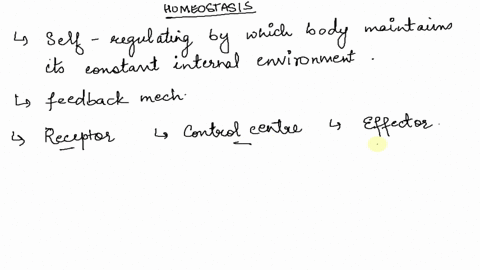 HOMEOSTASIS
↳ Self - regulating by which body maintains
its constant internal environment.
↳ feedback mech.
↳ Receptor ↳ Control centre ↳ Effector.